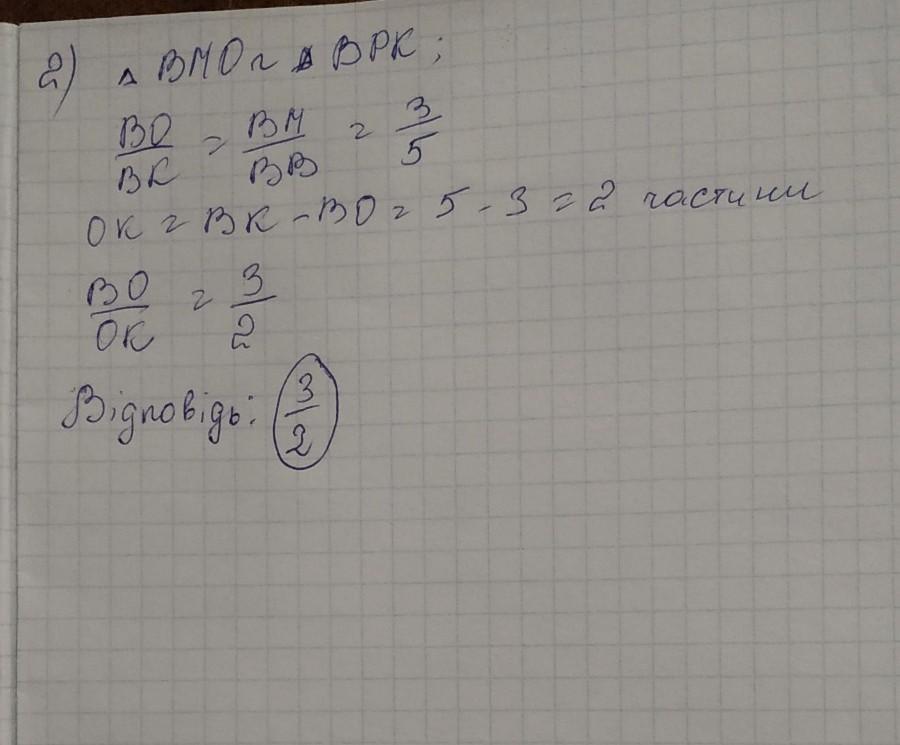 2) Δ BMO ~ Δ BPK;
BO/BK = BM/BB = 3/5
OK = BK - BO = 5 - 3 = 2 частини
BO/OK = 3/2
Відповідь: 3/2